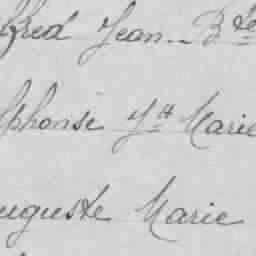 lfred Jean-Bte
lphonse Jh Marie
uguste Marie